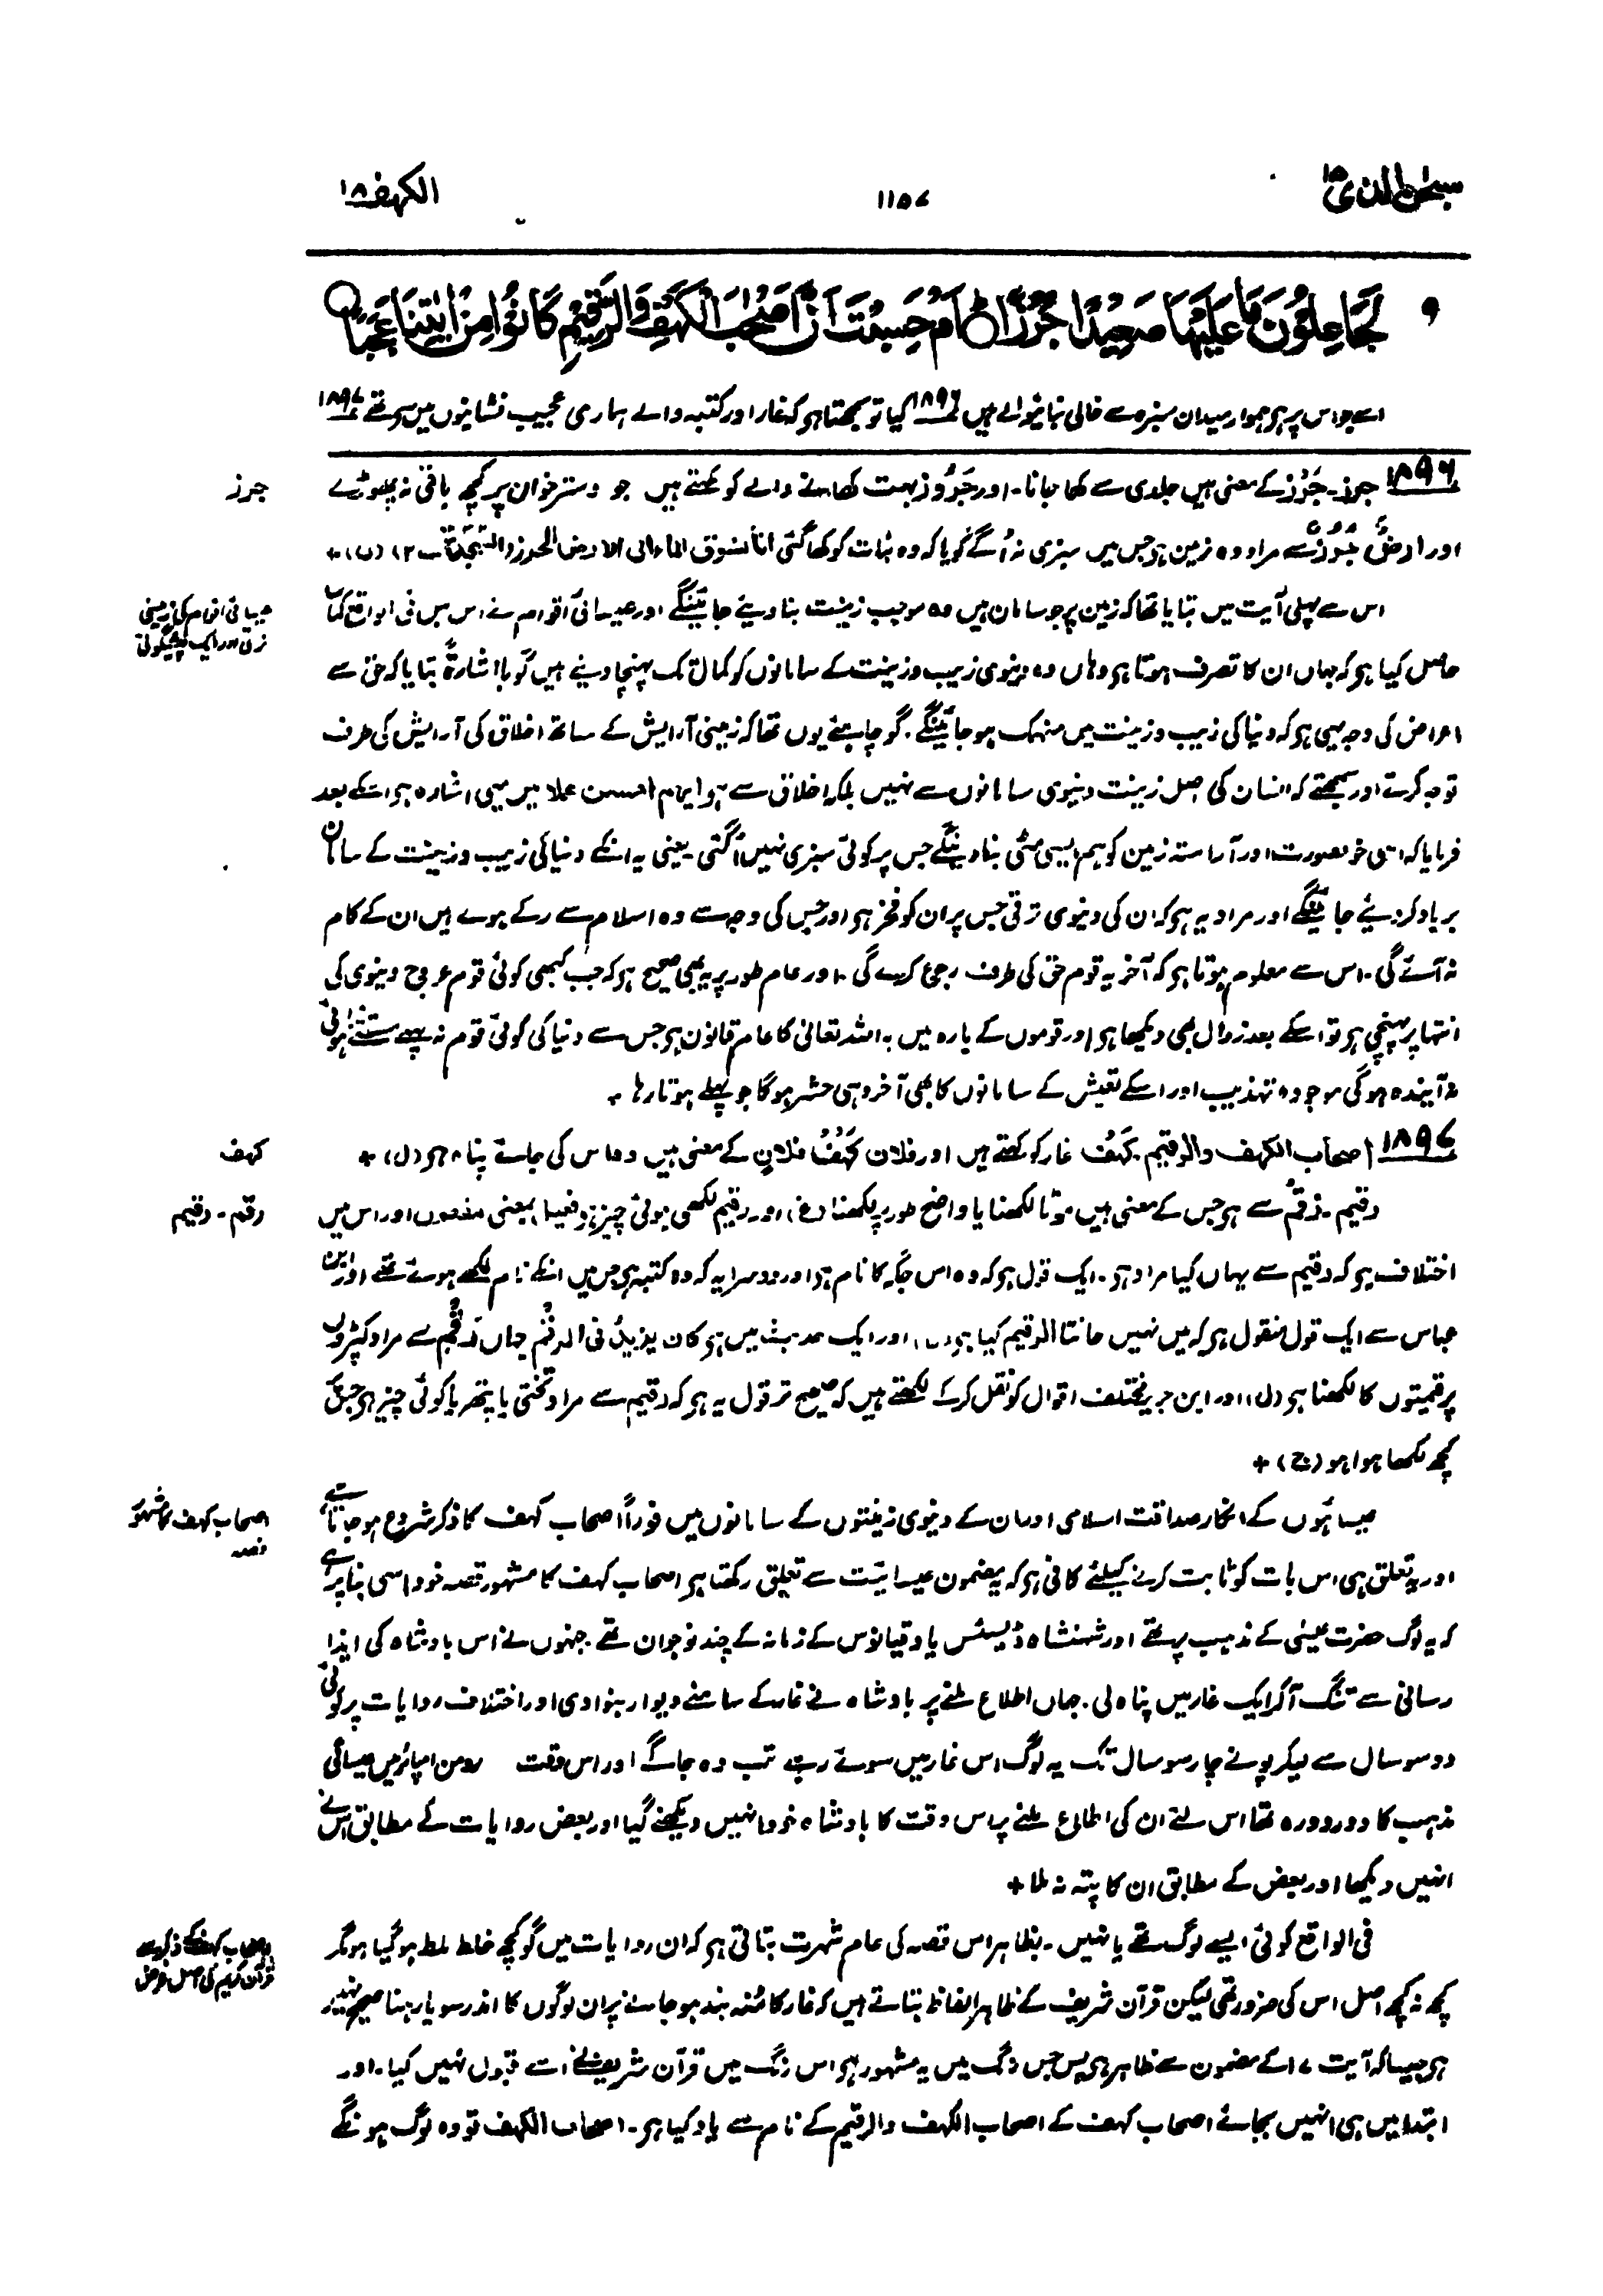 سبحٰن الذی ۱۵
۱۱۵۷
الکہف ۱۸
لَجَاعِلُوْنَ مَا عَلَیْهَا صَعِیْدًا جُرُزًا ۝ اَمْ حَسِبْتَ اَنَّ اَصْحٰبَ الْكَهْفِ وَالرَّقِیْمِ كَانُوْا مِنْ اٰیٰتِنَا عَجَبًا ۝
اسے جو اس پر ہو ہموار میدان سبزہ سے خالی بنانیوالے ہیں ۱۸۹۶ کیا تو سمجھتا ہو کہ غار اور کتبہ والے ہماری عجیب نشانیوں میں سے تھے ۱۸۹۷
۱۸۹۶ جرز۔ جَرْز کے معنی ہیں جلدی سے کھا جانا۔ اور جَرُوز بہت کھانے والے کو کہتے ہیں جو دسترخوان پر کچھ باقی نہ چھوڑے
جرز
اور ارضٌ جُرُزٌ سے مراد وہ زمین ہو جس میں سبزی نہ اُگے گویا کہ وہ نبات کو کھا گئی انا نسوق الماء الی الارض الجرز (السجدۃ ۔ ۲) (ں) +
اس سے پہلی آیت میں بتایا تھا کہ زمین پر جو سامان ہیں وہ موجب زینت بنا دیئے جائینگے اور عیسائی اقوام نے اس میں فی الواقع کمال
عیسائی اقوام کی زمینی
ترقی اور ایک پیشگوئی
حاصل کیا ہو کہ جہاں ان کا تصرف ہوتا ہو وہاں وہ دنیوی زیب و زینت کے سامانوں کو کمال تک پہنچا دیتے ہیں گویا اشارۃً بتایا کہ حق سے
اعراض کی وجہ یہی ہو کہ دنیا کی زیب و زینت میں منہمک ہو جائینگے۔ گو چاہیئے یوں تھا کہ زمینی آرایش کے ساتھ اخلاق کی آرایش کی طرف
توجہ کرتے اور سمجھتے کہ انسان کی اصل زینت دنیوی سامانوں سے نہیں بلکہ اخلاق سے ہو ایہم احسن عملا میں یہی اشارہ ہو اسکے بعد
فرمایا کہ اسی خوبصورت اور آراستہ زمین کو ہم ایسی مٹی بنا دینگے جس پر کوئی سبزی نہیں اُگتی۔ یعنی یہ انکے دنیا کی زیب و زینت کے سامان
برباد کر دیئے جائینگے اور مراد یہ ہو کہ ان کی دنیوی ترقی جس پر ان کو فخر ہو اور جس کی وجہ سے وہ اسلام سے رکے ہوئے ہیں ان کے کام
نہ آئے گی۔ اس سے معلوم ہوتا ہو کہ آخر یہ قوم حق کی طرف رجوع کرے گی۔ اور عام طور پر یہ بھی صحیح ہو کہ جب کبھی کوئی قوم عروج دنیوی کی
انتہا پر پہنچی ہو تو اسکے بعد زوال بھی دیکھا ہو اور قوموں کے بارہ میں یہ اللہ تعالیٰ کا عام قانون ہو جس سے دنیا کی کوئی قوم نہ پہلے مستثنیٰ ہوئی
نہ آیندہ ہوگی موجودہ تہذیب اور اسکے تعیش کے سامانوں کا بھی آخر وہی حشر ہوگا جو پہلے ہوتا رہا ۔
۱۸۹۷ اصحاب الکہف والرقیم۔ کَہْف غار کو کہتے ہیں اور فلان کَہْفُ فلانٍ کے معنی ہیں وہ اس کی جائے پناہ ہو (ل) +
کہف
رقیم۔ رَقْم سے ہو جس کے معنی ہیں موٹا لکھنا یا واضح طور پر لکھنا (غ) اور رقیم لکھی ہوئی چیز ہو فعیل بمعنی مفعول اور اس میں
رقم ۔ رقیم
اختلاف ہو کہ رقیم سے یہاں کیا مراد ہو۔ ایک قول ہو کہ وہ اس جگہ کا نام ہو اور دوسرا یہ کہ وہ کتبہ ہو جس میں انکے نام لکھے ہوئے تھے اور ابن
عباس سے ایک قول منقول ہو کہ میں نہیں جانتا الرقیم کیا ہو اور ایک حدیث میں ہو کان یزید فی الرقم جہاں رقم سے مراد کپڑوں
پر قیمتوں کا لکھنا ہو (ل) اور ابن جریر مختلف اقوال کو نقل کر کے لکھتے ہیں کہ صحیح تر قول یہ ہو کہ رقیم سے مراد تختی یا پتھر یا کوئی چیز ہو جس پر
کچھ لکھا ہوا ہو (ج) +
عیسائیوں کے انکار صداقت اسلامی اور ان کے دنیوی زینتوں کے سامانوں میں فوراً اصحاب کہف کا ذکر شروع ہو جاتا ہے
اصحاب کہف کا مشہور
قصہ
اور یہ تعلق ہی اس بات کو ثابت کرنے کیلئے کافی ہو کہ یہ مضمون عیسائیت سے تعلق رکھتا ہو اصحاب کہف کا مشہور قصہ خود اسی بنا پر ہے
کہ یہ لوگ حضرت عیسیٰ کے مذہب پر تھے اور شہنشاہ ڈیسئس یا دقیانوس کے زمانہ کے چند نوجوان تھے۔ جنہوں نے اس بادشاہ کی ایذا
رسانی سے تنگ آکر ایک غار میں پناہ لی۔ جہاں اطلاع ملنے پر بادشاہ نے غار کے سامنے دیوار بنوا دی اور اختلاف روایات پر کوئی
دو سو سال سے لیکر پونے چار سو سال تک یہ لوگ اس غار میں سوئے رہے تب وہ جاگے اور اس وقت رومن امپائر میں عیسائی
مذہب کا دور دورہ تھا اس لئے ان کی اطلاع ملنے پر اس وقت کا بادشاہ خود انہیں دیکھنے گیا اور بعض روایات کے مطابق اس نے
انہیں دیکھا اور بعض کے مطابق ان کا پتہ نہ ملا +
فی الواقع کوئی ایسے لوگ تھے یا نہیں۔ بظاہر اس قصہ کی عام شہرت بتاتی ہو کہ ان روایات میں گو کچھ خلط ملط ہو گیا ہو مگر
اصحاب کہف کے ذکر سے
قرآن کریم کی اصل غرض
کچھ نہ کچھ اصل اس کی ضرور تھی لیکن قرآن شریف کے ظاہر الفاظ بتاتے ہیں کہ غار کا مُنہ بند ہو جانے پر ان لوگوں کا اندر سویا رہنا صحیح نہیں
ہو جیسا کہ آیت ۱۷ کے مضمون سے ظاہر ہو پس جس رنگ میں یہ مشہور ہو اس رنگ میں قرآن شریف نے اسے قبول نہیں کیا۔ اور
ابتدا میں ہی انہیں بجائے اصحاب کہف کے اصحاب الکہف والرقیم کے نام سے یاد کیا ہو۔ اصحاب الکہف تو وہ لوگ ہونگے